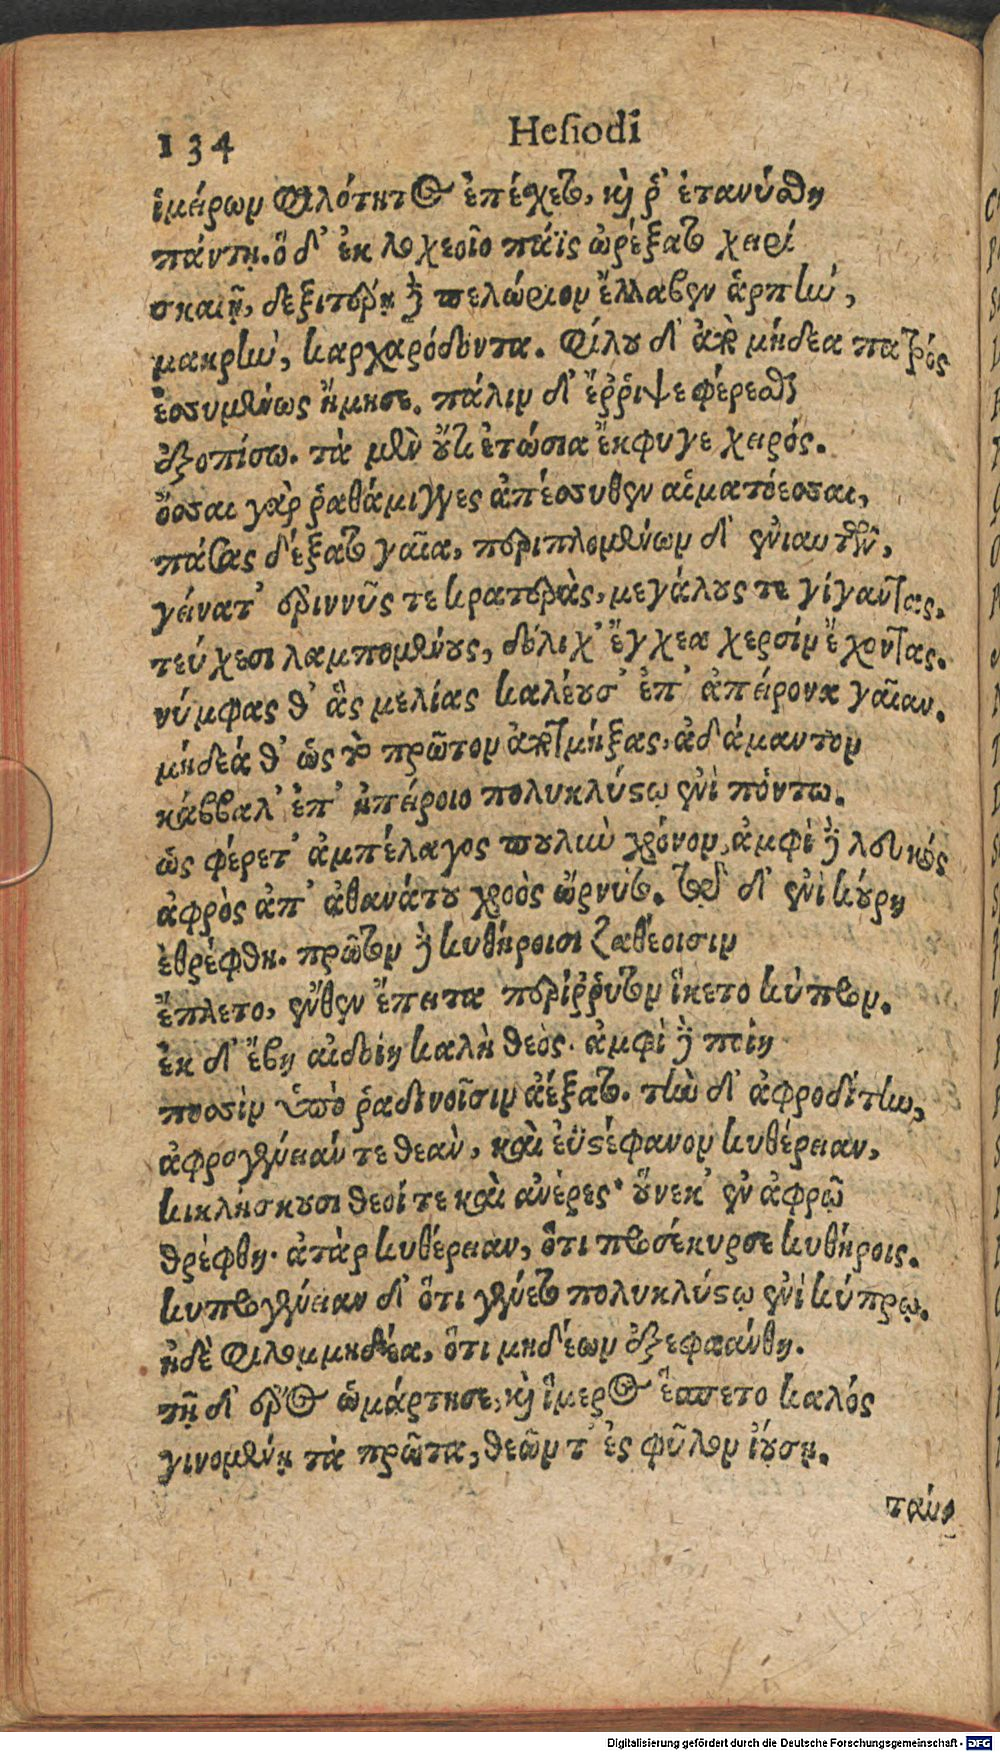 134 Hesiodi
ἱμείρων φιλότητος ἐπέσχετο, καὶ ῥ' ἐτανύσθη
πάντη. ὃ δ' ἐκ λοχεοῖο πάϊς ὠρέξατο χειρὶ
σκαιῇ, δεξιτερῇ δὲ πελώριον ἔλλαβεν ἅρπην,
μακρὴν, καρχαρόδοντα. φίλου δ' ἀπὸ μήδεα πατρός
ἐσσυμένως ἤμησε. πάλιν δ' ἔῤῥιψε φέρεσθαι
ἐξοπίσω. τὰ μὲν οὔτι ἐτώσια ἔκφυγε χειρός.
ὅσσαι γὰρ ῥαθάμιγγες ἀπέσσυθεν αἱματόεσσαι,
πάσας δέξατο γαῖα, περιπλομένων δ' ἐνιαυτῶν,
γείνατ' ἐριννῦς τε κρατερὰς, μεγάλους τε γίγαντας,
τεύχεσι λαμπομένους, δόλιχ' ἔγχεα χερσὶν ἔχοντας.
νύμφας θ' ἃς μελίας καλέουσ' ἐπ' ἀπείρονα γαῖαν.
μήδεά θ' ὡς τὸ πρῶτον ἀποτμήξας, ἀδάμαντον
κάββαλ' ἐπ' ἠπείροιο πολυκλύστῳ ἐνὶ πόντω.
ὣς φέρετ' ἀμπέλαγος πουλὺν χρόνον, ἀμφὶ δὲ λευκός
ἀφρὸς ἀπ' ἀθανάτου χροὸς ὤρνυτο. τῷ δ' ἐνὶ κούρη
ἐθρέφθη. πρῶτον δὲ κυθήροισι ζαθέοισιν
ἔπλετο, ἔνθεν ἔπειτα περίῤῥυτον ἵκετο κύπρον.
ἐκ δ' ἔβη αἰδοίη καλὴ θεὸς. ἀμφὶ δὲ ποίη
ποσσὶν ὑπὸ ῥαδινοῖσιν ἀέξατο. τὴν δ' ἀφροδίτην,
ἀφρογένειάν τε θεὰν, καὶ ἐϋστέφανον κυθέρειαν,
κικλήσκουσι θεοί τε καὶ ἀνέρες· οὕνεκ' ἐν ἀφρῷ
θρέφθη. ἀτὰρ κυθέρειαν, ὅτι προσέκυρσε κυθήροις.
κυπρογένειαν δ' ὅτι γένετο πολυκλύστῳ ἐνὶ κύπρῳ.
ἠδὲ φιλομμηδέα, ὅτι μηδέων ἐξεφαάνθη.
τῇ δ' ἔρος ὡμάρτησε, καὶ ἵμερος ἕσπετο καλός
γινομένῃ τὰ πρῶτα, θεῶν τ' ἐς φῦλον ἰούσῃ.
ταύ⸗
Digitalisierung gefördert durch die Deutsche Forschungsgemeinschaft - DFG